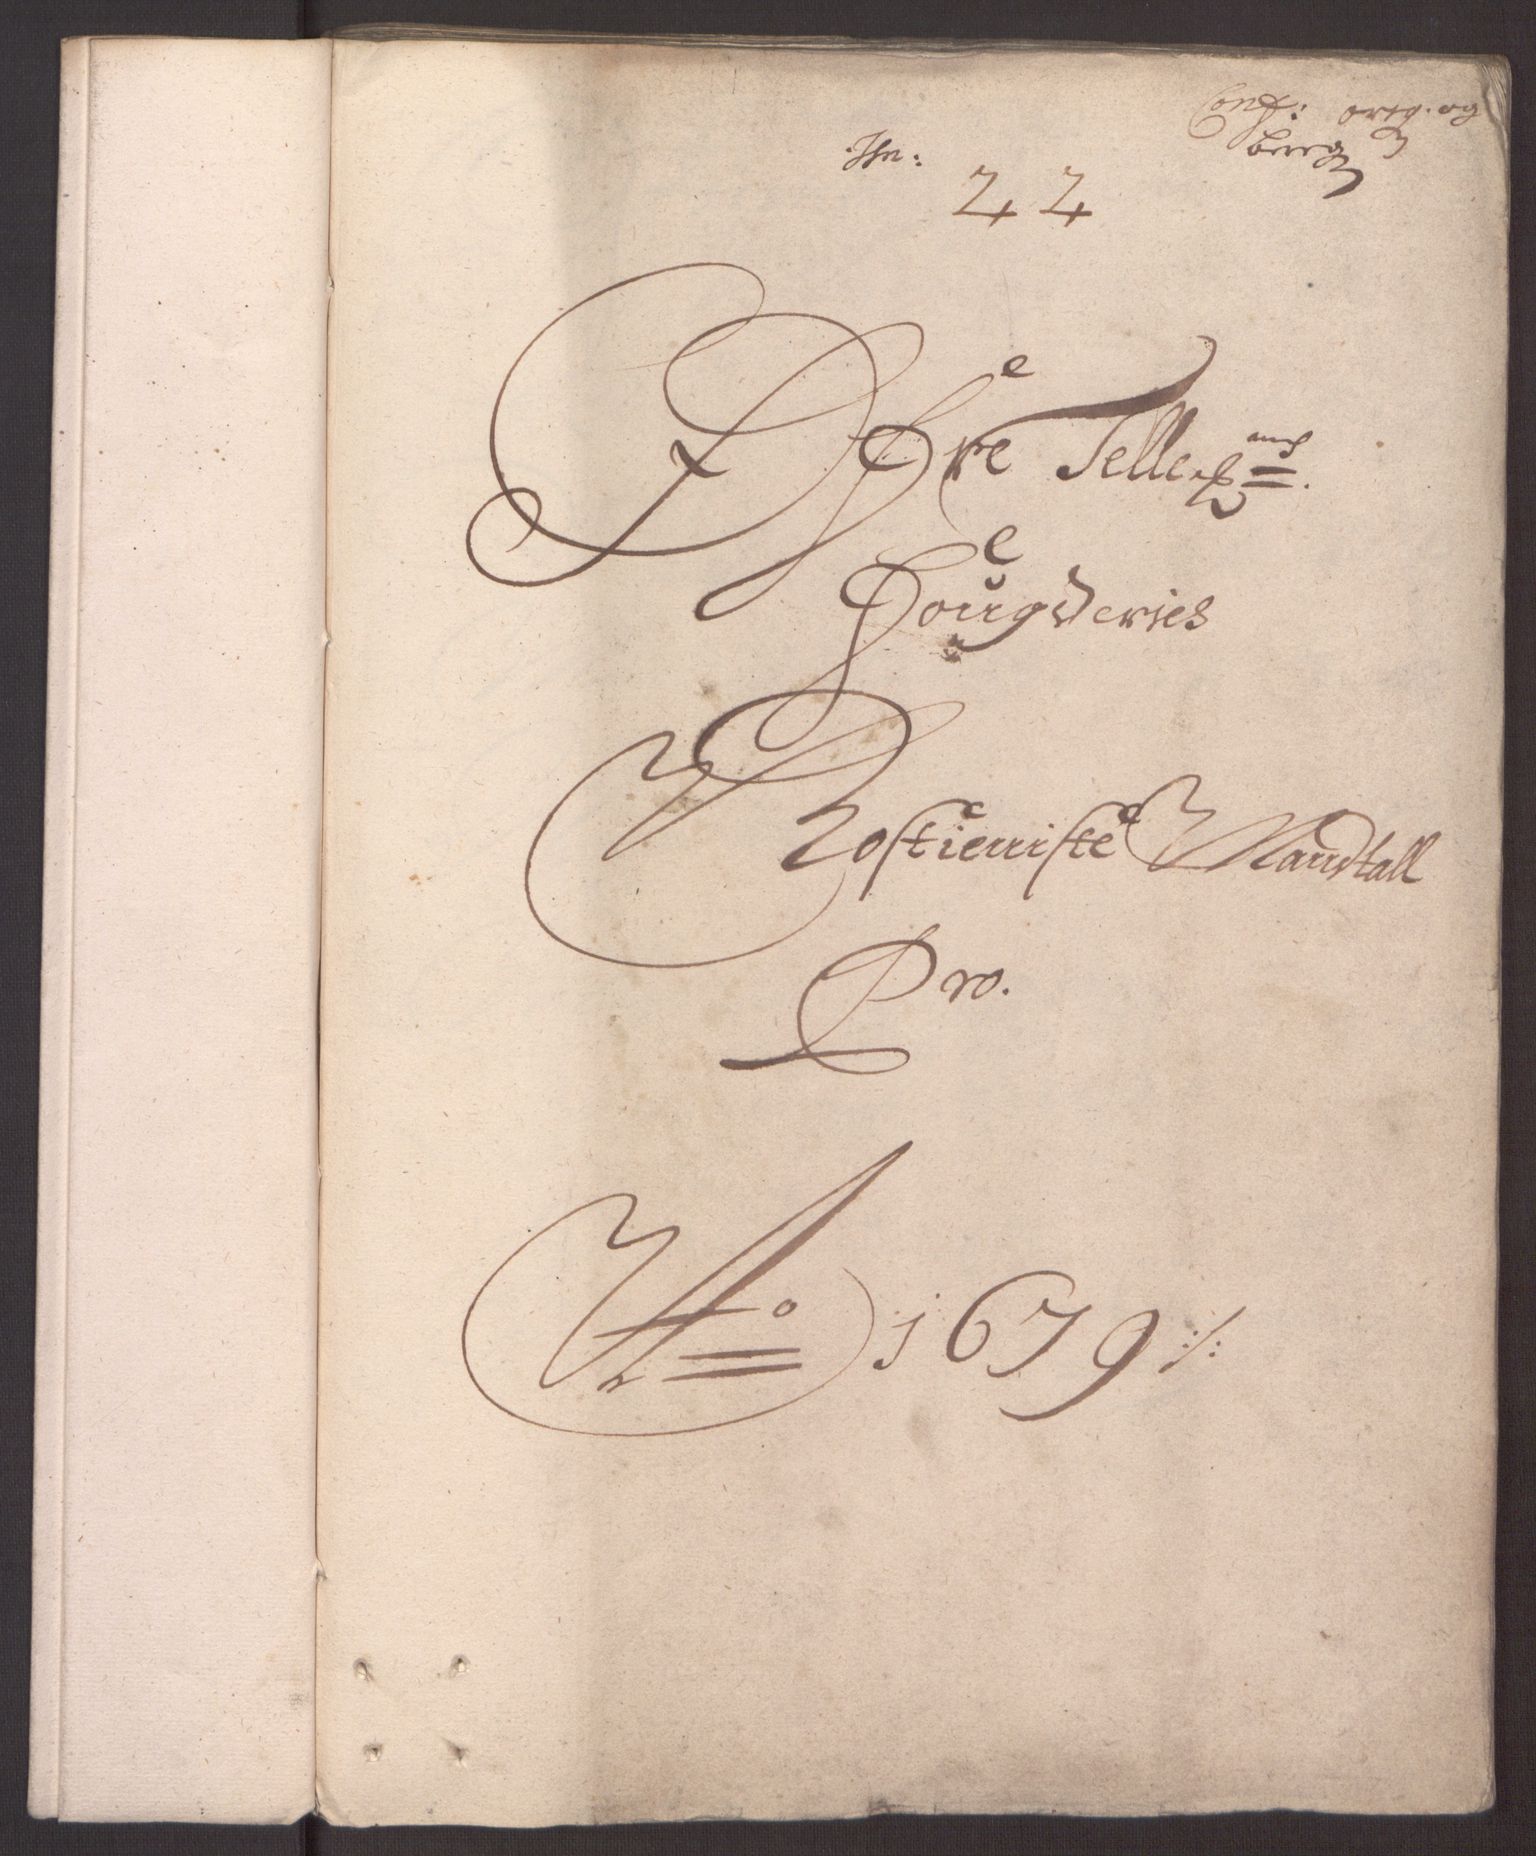 Conf: orig. og
bereg
No: 44
Øfre Tellemms
Fougderies
Kostieniste Mandtall
Pro.
Ao 1679 ./.